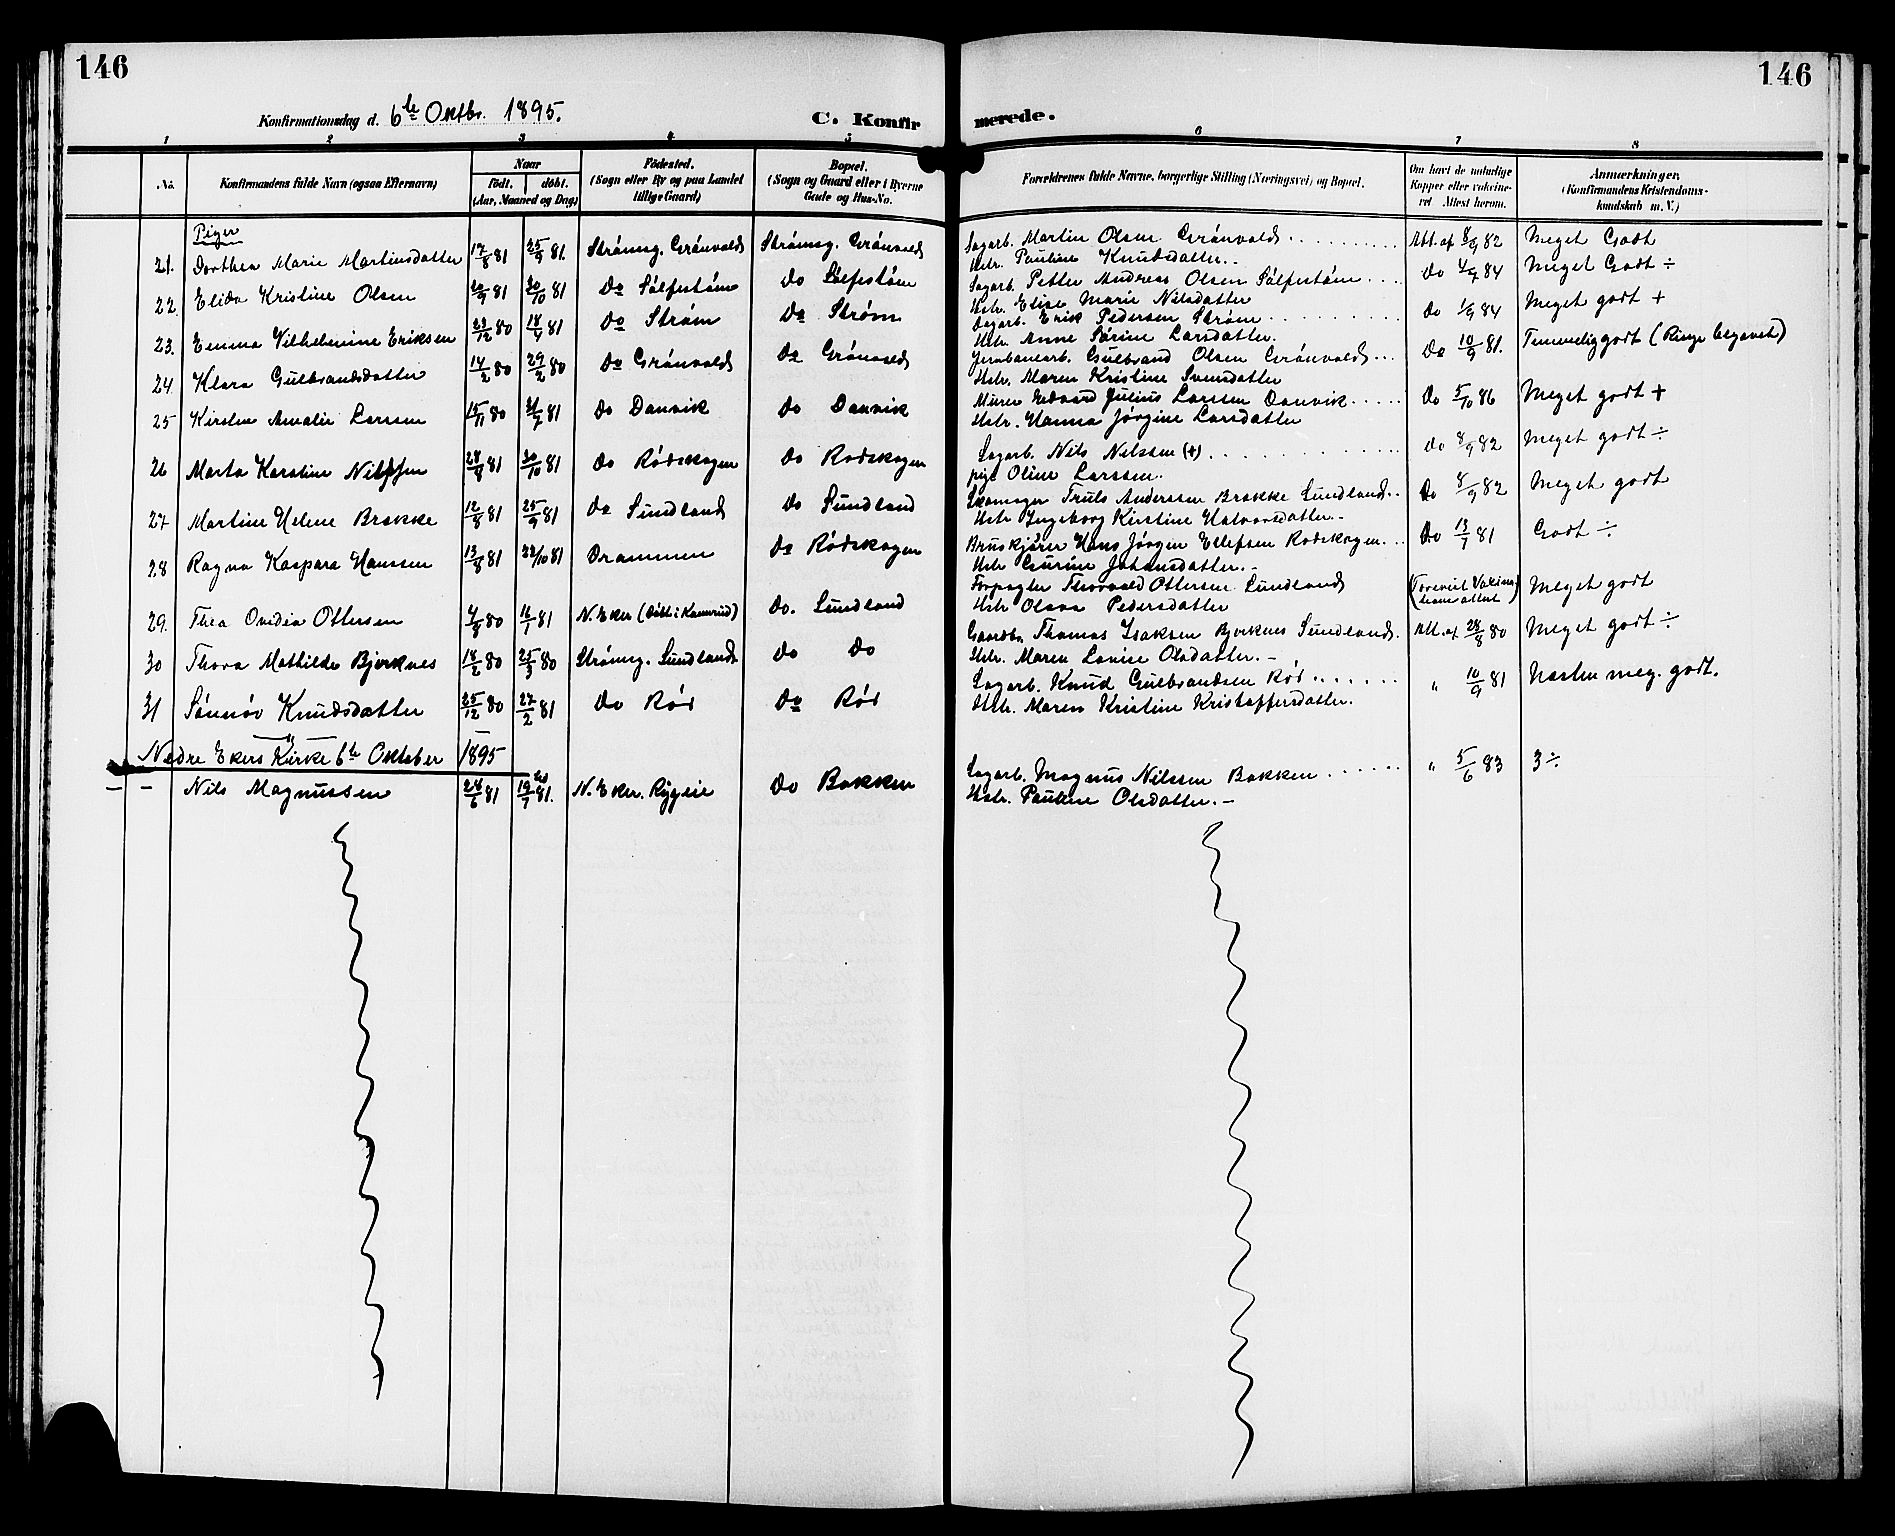 146
146
Konfirmationsdag d. 6te Oktbr. 1895.
C. Konfir
merede.
1 2 3 4 5 6 7 8
No.
Konfirmandens fulde Navn (ogsaa Efternavn)
Naar
født. døbt.
(Aar, Maaned og Dag)
Fødested.
(Sogn eller By og paa Landet
tillige Gaard)
Bopæl.
(Sogn og Gaard eller i Byerne
Gade og Hus-No.
Forældrenes fulde Navne, borgerlige Stilling (Næringsvei) og Bopæl.
Om havt de naturlige
Kopper eller vakcine-
ret Attest herom.
Anmærkninger.
(Konfirmandens Kristendoms-
kundskab m. V.)
Piger
21. Dorthea Marie Martinsdatter 17/8 81 25/9 81. Strømsg. Grønvold Strømsg. Grønvold Sagarb. Martin Olsen Grønvold Att. af 8/9 82 Meget Godt
Hstr. Pauline Knudsdatter.
22. Elida Kristine Olsen 20/9 81 30/10 81 Do Sølfestøm Do Sølfestøm Sagarb. Petter Andreas Olsen Sølfestøm Do 4/9 84 Meget Godt ÷
Hstr. Elise Marie Nilsdatter
23. Emma Vilhelmine Eriksen 23/12 80 18/4 81 Do Strøm Do Strøm Dagarb. Erik Pedersen Strøm Do 1/9 84 Meget godt +
Hstr. Anne Sørine Larsdatter.
24 Klara Gulbrandsdatter 14/2 80 29/2 80 Do Grønvold Do Grønvold Jernbanearb. Gulbrand Olsen Grønvold Do 10/9 81. Temmelig godt (Ringe begavet)
Hstr. Maren Kristine Svensdatter
25 Kirsten Amalie Larsen 15/11 80 31/7 81 Do Danvik Do Danvik Murer Edvard Julius Larsen Danvik Do 5/10 86 Meget godt +
Hstr. Hanna Jørgine Larsdatter
26 Marta Karstine Nilssen 28/8 81 30/10 81 Do Rødskogen Do Rødskogen Sagarb. Nils Nilssen (+) Do 8/9 82 Meget godt ÷
pige Oline Larssen.
27 Martine Helene Brakke 12/8 81 25/9 81 Do Sundland Do Sundland Skomager Truls Anderssen Brakke Sundland Do 8/9 82 Meget godt
Hstr Ingeborg Kirstine Halvorsdatter.
28 Ragna Kaspara Hanssen 13/8 81 23/10 81 Drammen Do Rødskogen Bruskjører Hans Jørgen Ellefsen Rodskogen Do 13/7 81 Godt ÷
Hstr Gurine Johansdatter.
29. Thea Ovidia Ottersen 4/8 80 16/1 81 N. Eker (Døbt i Kannrud) Do. Sundland Forpagter Thorvald Ottersen Sundland (Forevist Vakcina- Meget godt
Hstr Olava Pedersdatter
30 Thora Mathilde Bjerknes 18/2 80 25/3 80 Strømsg. Sundland Do Do Gaardbr. Thomas Isaksen Bjerknes Sundland. Att. af 28/8 80 Meget godt ÷
Hstr. Maren Lovise Olsdatter.
31 Sønnøv Knudsdatter 25/12 80 27/2 81 Do Rød Do Rød Sagarb. Knud Gulbrandsen Rød " 10/9 81 Næsten meg. godt.
Hstr. Maren Kristine Kristoffersdatter.
Nedre Ekers Kirke 6te Oktober 1895
Nils Magnussen 24/6 81 19/7 81. N. Eker. Rygeie Do Bakken Sagarb. Magnus Nilssen Bakken " 5/6 83 3÷
Hstr. Pauline Olsdatter.